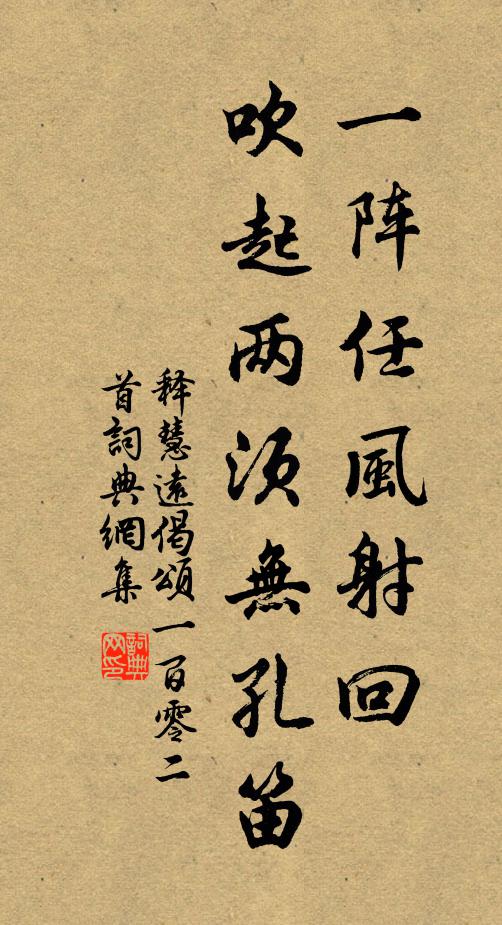 一阵任風射回
吹起两须無孔笛
释慧遠偈頌一百零二
首詞典網集
詞典网印